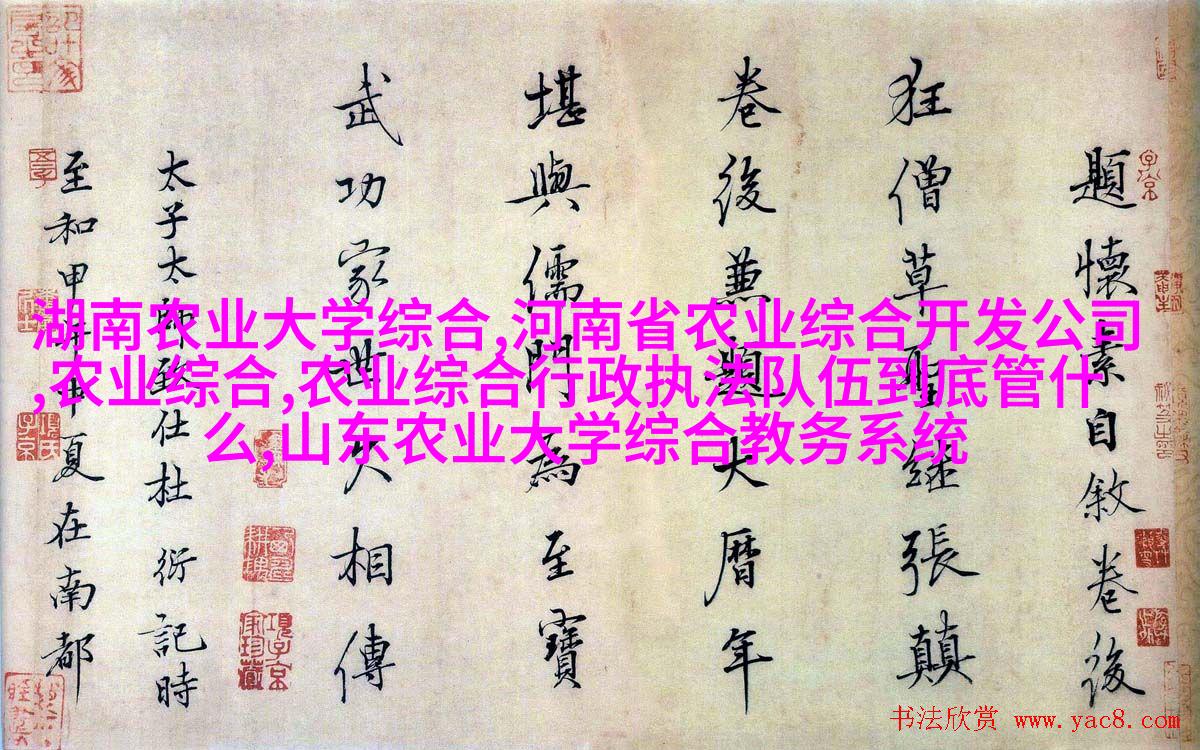 題懷素自敘卷後
狂僧草聖繼張顛
卷後兼題大曆年
堪與儒門為至寶
武功家世久相傳
太子太師致仕杜 衍記時
至和甲午中夏在南都
湖南农业大学综合,河南省农业综合开发公司
,农业综合,农业综合行政执法队伍到底管什
么,山东农业大学综合教务系统
书法欣赏 www.yac8.com